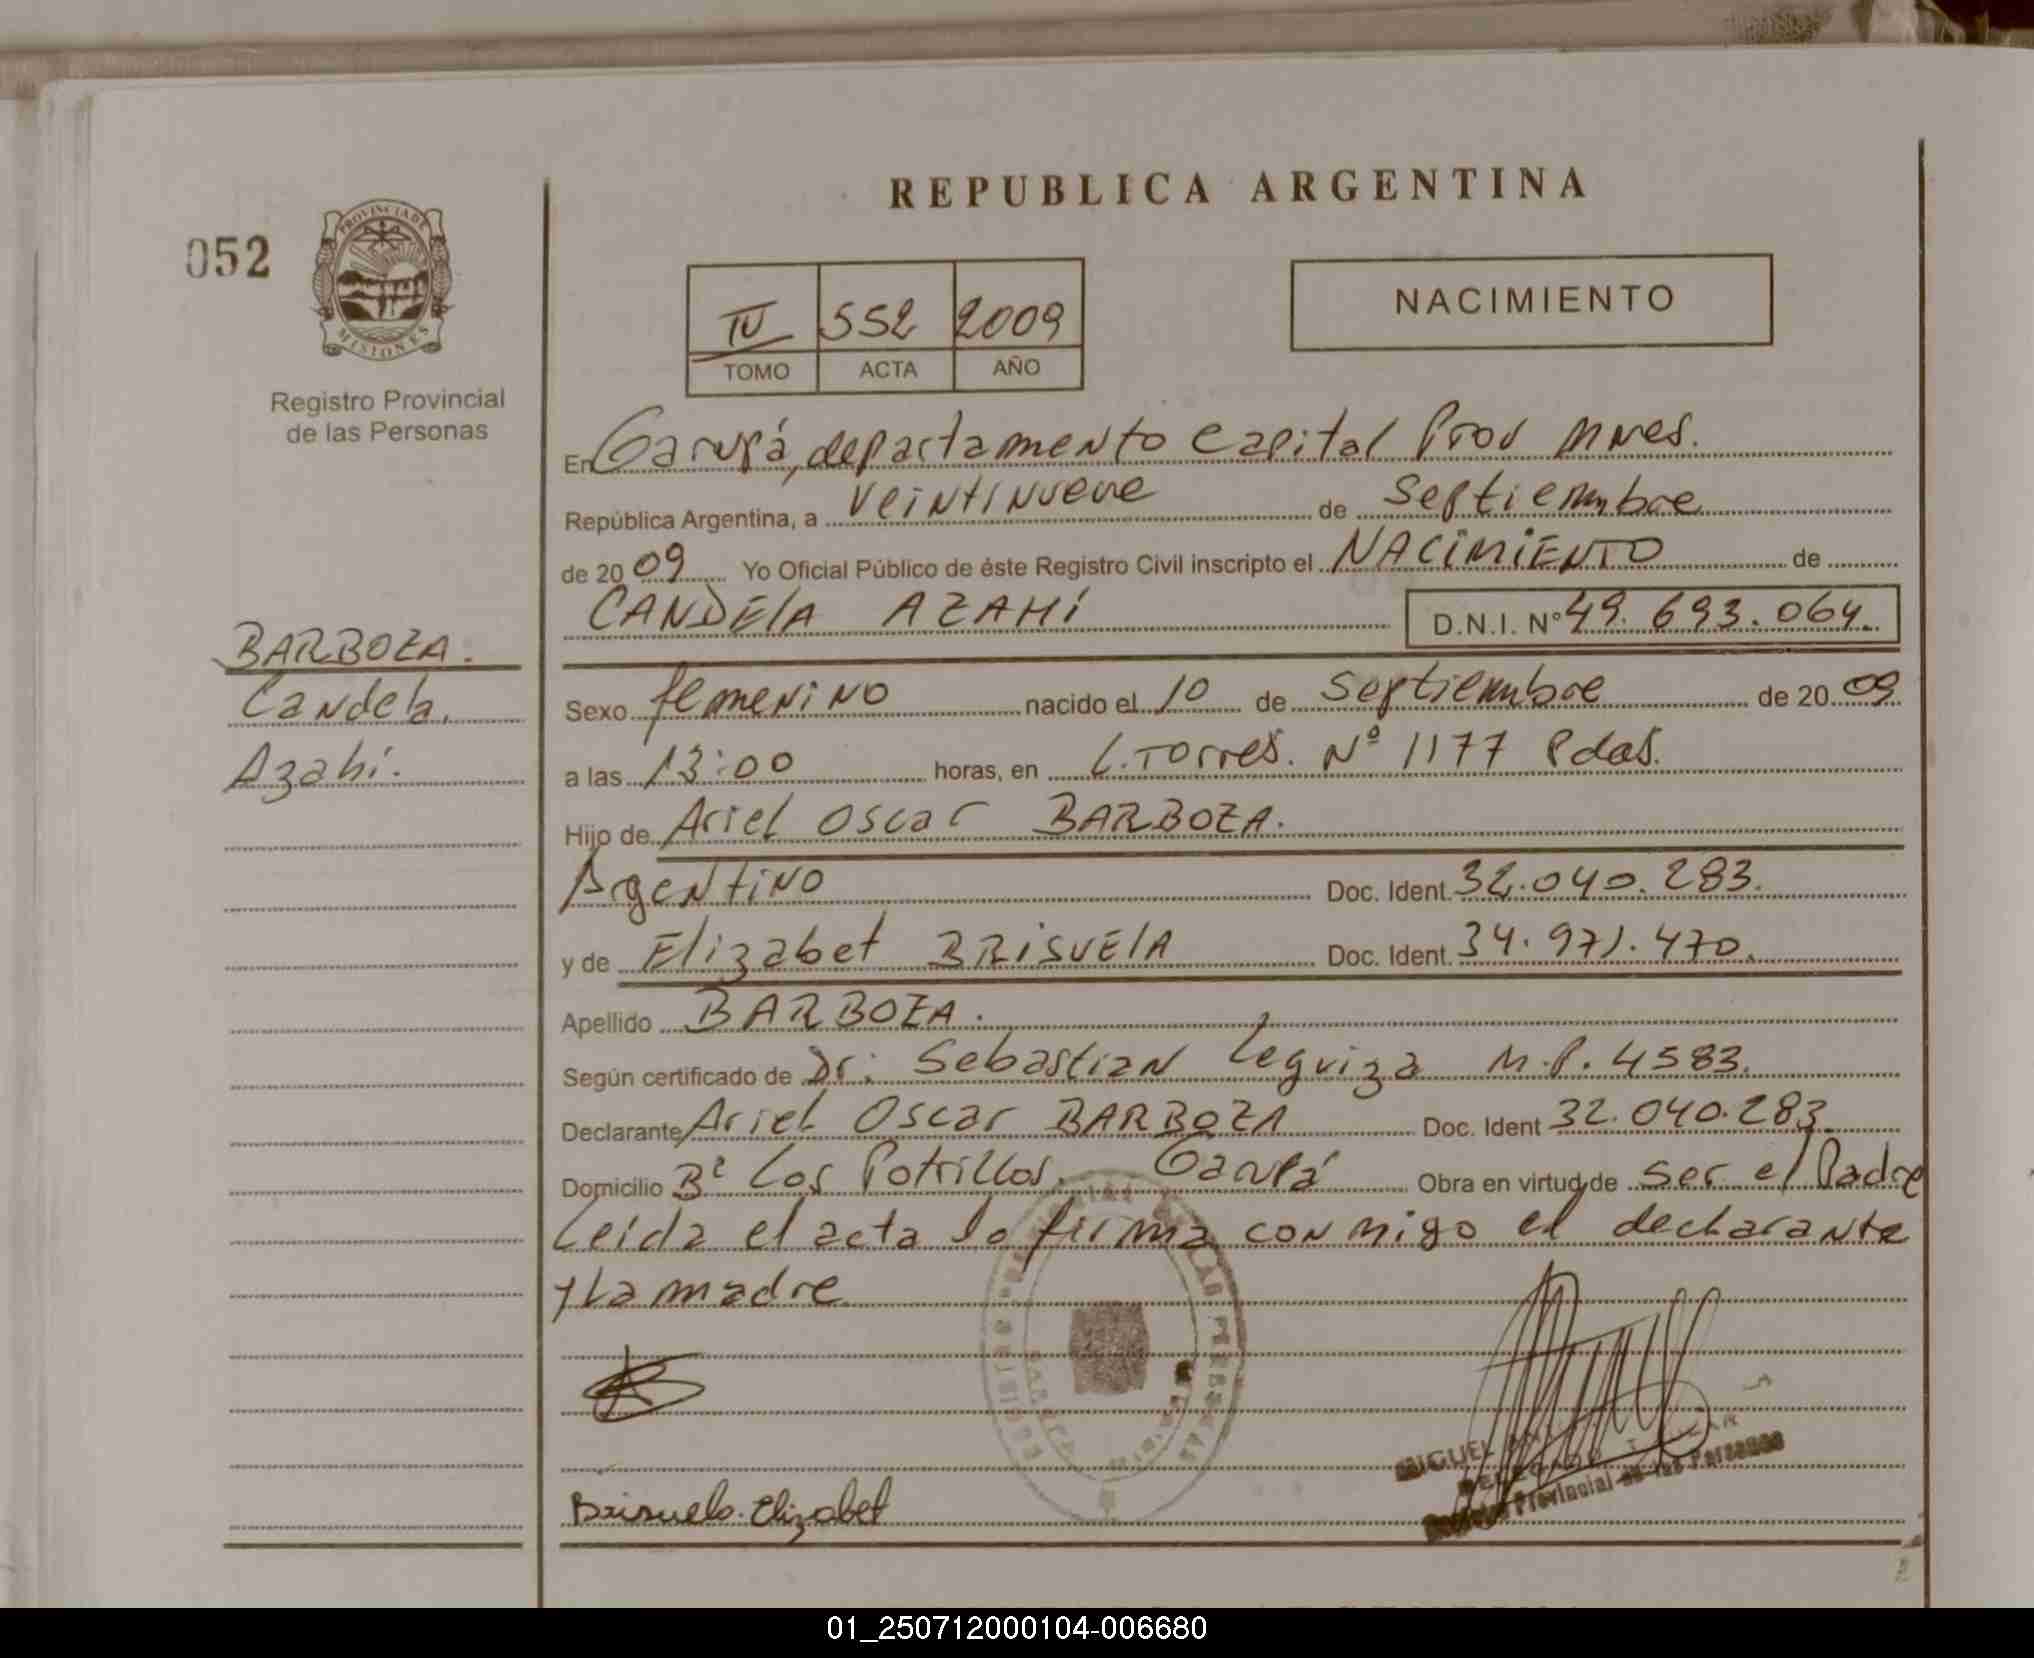 REPUBLICA ARGENTINA
052
PROVINCIA DE
MISIONES
Registro Provincial
de las Personas
IV 552 2009
TOMO ACTA AÑO
NACIMIENTO
En Garupá, departamento Capital Prov Mnes.
República Argentina, a veintinueve de Septiembre
de 2009 Yo Oficial Público de éste Registro Civil inscripto el NACIMIENTO de
CANDELA AZAHÍ D.N.I. Nº 49.693.064.
BARBOZA.
Candela,
Azahí.
Sexo femenino nacido el 10 de Septiembre de 2009
a las 13:00 horas, en L. Torres. Nº 1177 Pdas.
Hijo de Ariel Oscar BARBOZA.
Argentino Doc. Ident. 32.040.283.
y de Elizabet BRISUELA Doc. Ident. 34.971.470.
Apellido BARBOZA.
Según certificado de Dr: Sebastian Leguiza M.P. 4583.
Declarante Ariel Oscar BARBOZA Doc. Ident 32.040.283.
Domicilio Bº Los Potrillos. Garupá Obra en virtud de ser el Padre
Leída el acta lo firma conmigo el declarante
y La madre
MIGUEL
Provincial de las Personas
Brisuela Elizabet
2
01_250712000104-006680